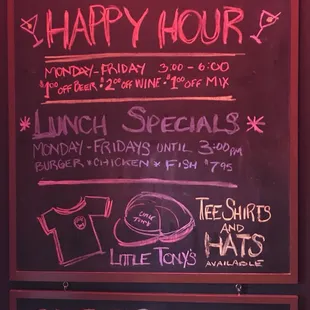 HAPPY HOUR
MONDAY-FRIDAY 3:00-6:00
$1.00 OFF BEER • 2.00 OFF WINE • $1.00 OFF MIX
* LUNCH SPECIALS *
MONDAY-FRIDAYS UNTIL 3:00 PM
BURGER × CHICKEN × FISH $7.95
LITTLE TONY'S
TEE SHIRTS
AND
HATS
AVAILABLE
LITTLE TONY'S